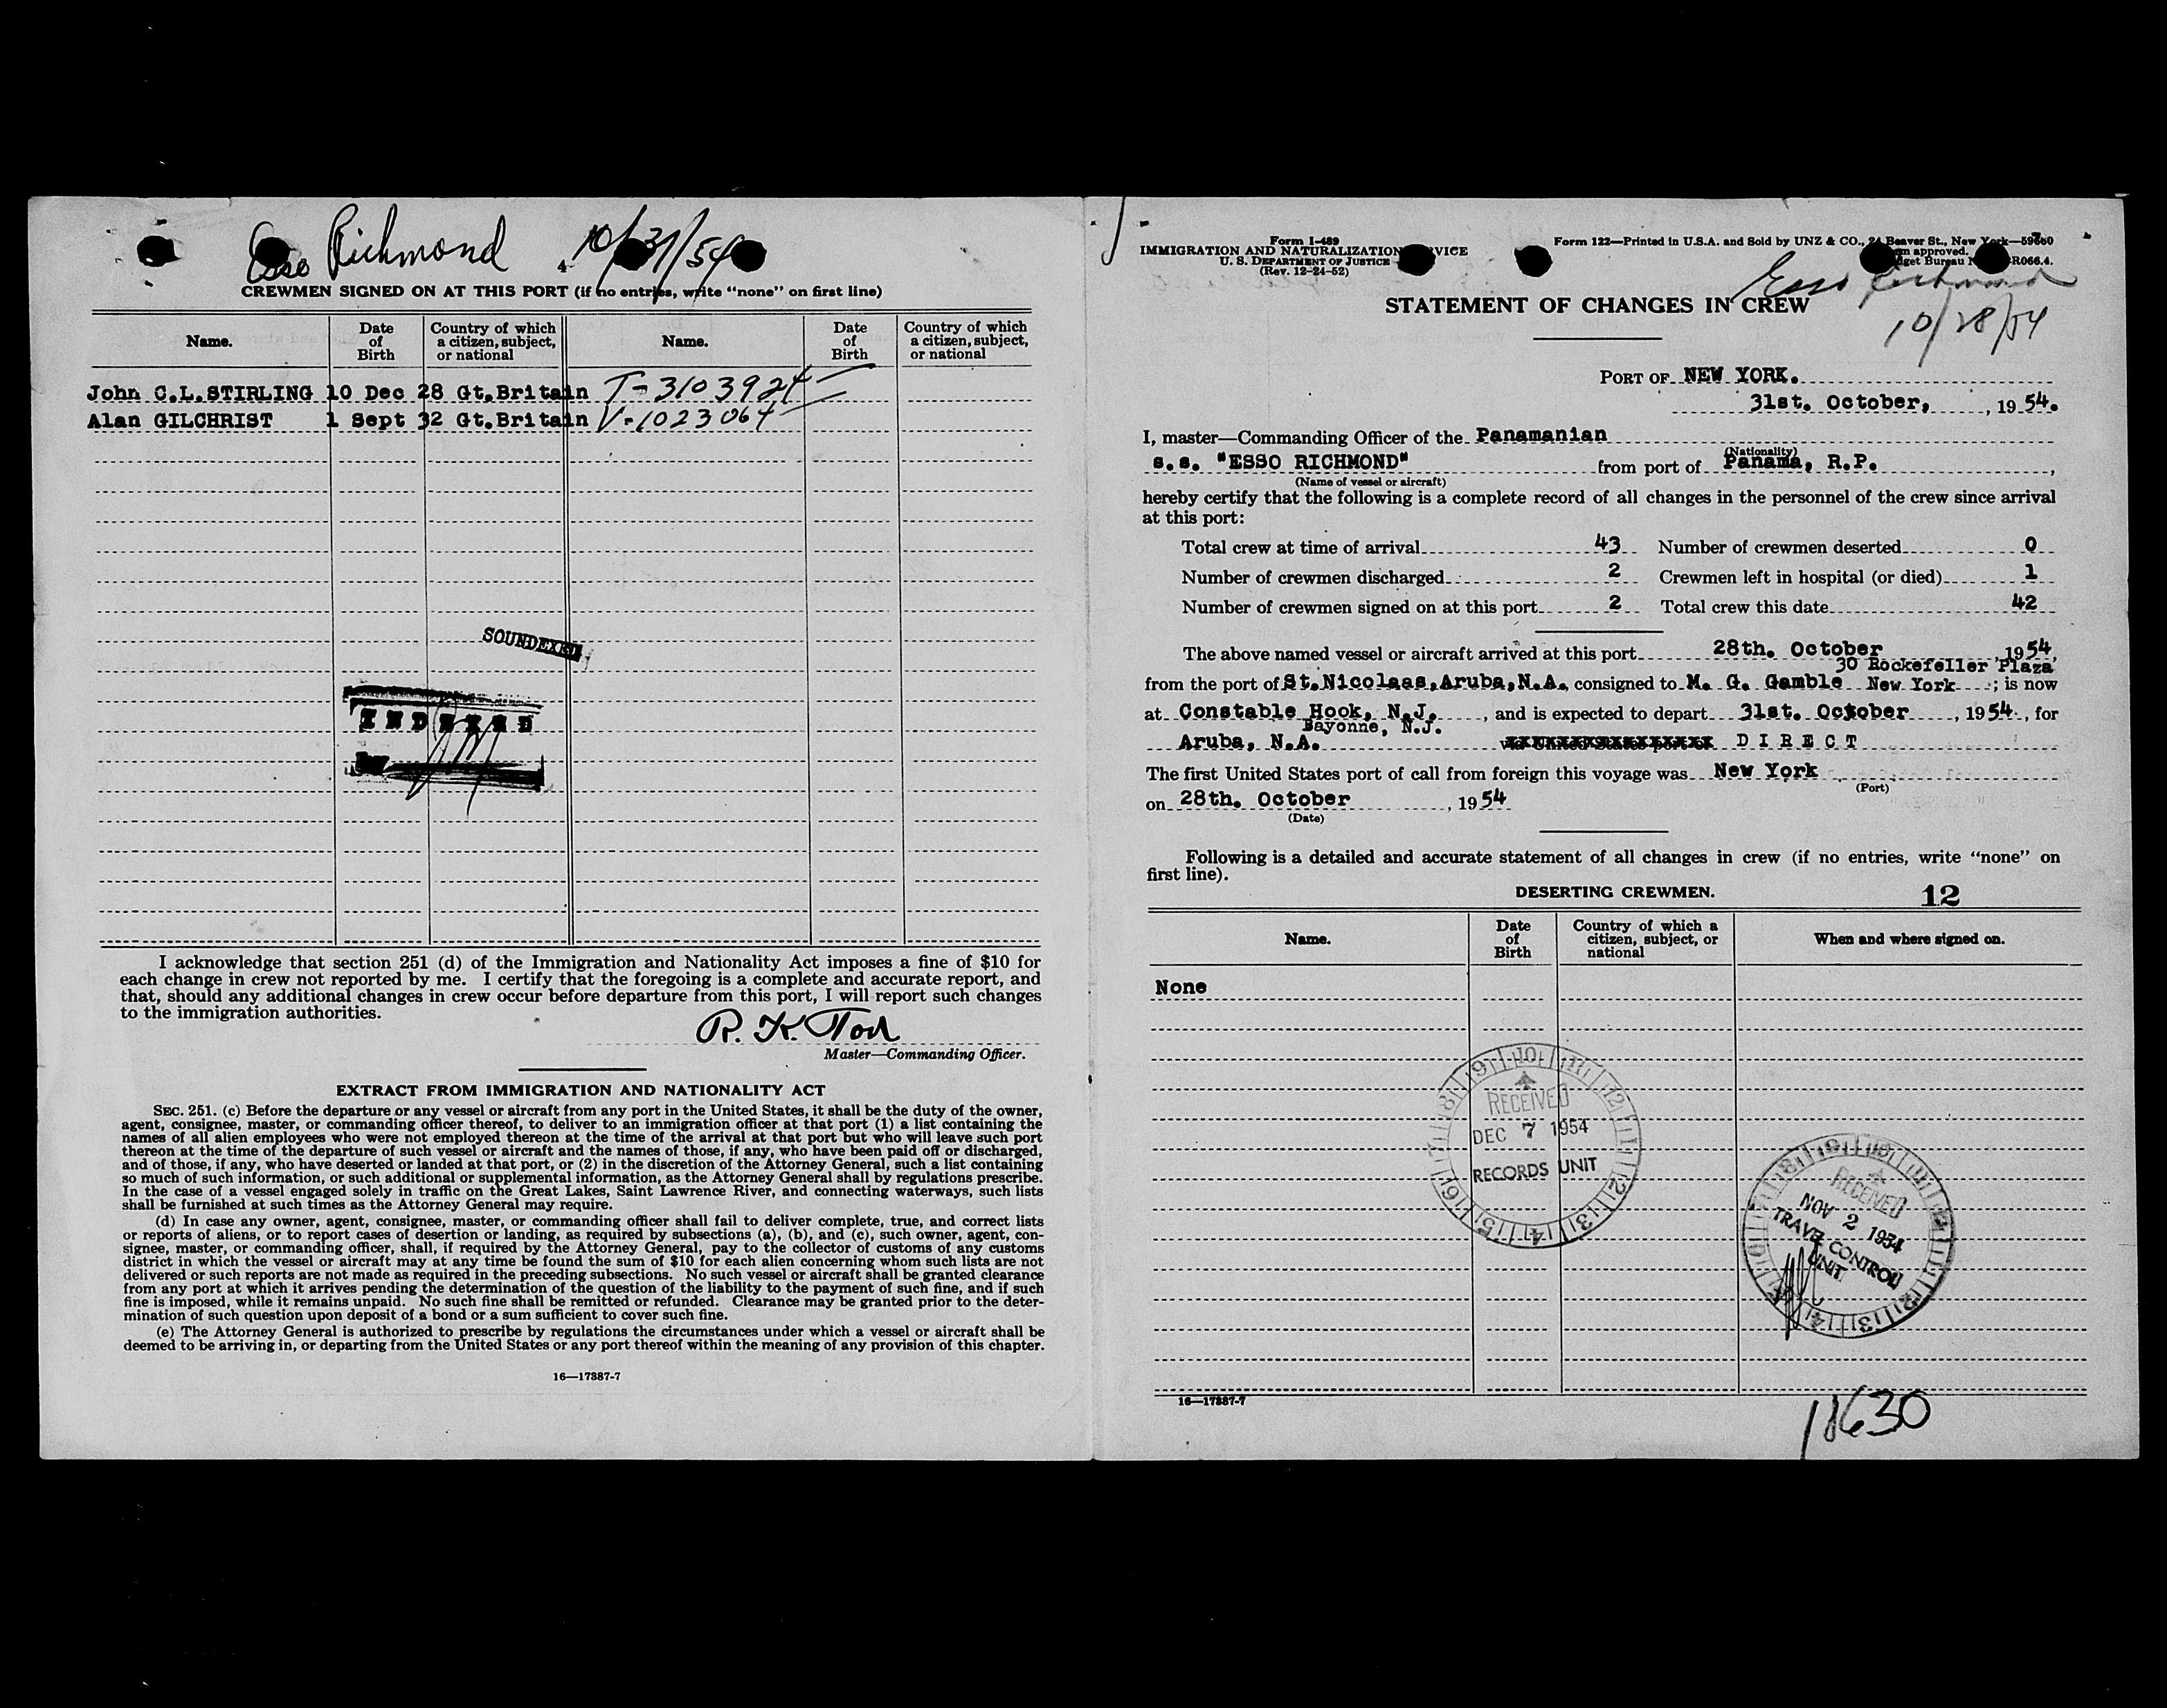 Esso Richmond 10/31/54
4
CREWMEN SIGNED ON AT THIS PORT (if no entries, write “none” on first line)
Name. Date of Birth Country of which a citizen, subject, or national Name. Date of Birth Country of which a citizen, subject, or national
John C.L.STIRLING 10 Dec 28 Gt.Britain T-3103924
Alan GILCHRIST 1 Sept 32 Gt.Britain V-1023064
SOUNDEXED
INDEXED
I acknowledge that section 251 (d) of the Immigration and Nationality Act imposes a fine of $10 for
each change in crew not reported by me. I certify that the foregoing is a complete and accurate report, and
that, should any additional changes in crew occur before departure from this port, I will report such changes
to the immigration authorities.
R. K. Tod
Master—Commanding Officer.
EXTRACT FROM IMMIGRATION AND NATIONALITY ACT
SEC. 251. (c) Before the departure or any vessel or aircraft from any port in the United States, it shall be the duty of the owner,
agent, consignee, master, or commanding officer thereof, to deliver to an immigration officer at that port (1) a list containing the
names of all alien employees who were not employed thereon at the time of the arrival at that port but who will leave such port
thereon at the time of the departure of such vessel or aircraft and the names of those, if any, who have been paid off or discharged,
and of those, if any, who have deserted or landed at that port, or (2) in the discretion of the Attorney General, such a list containing
so much of such information, or such additional or supplemental information, as the Attorney General shall by regulations prescribe.
In the case of a vessel engaged solely in traffic on the Great Lakes, Saint Lawrence River, and connecting waterways, such lists
shall be furnished at such times as the Attorney General may require.
(d) In case any owner, agent, consignee, master, or commanding officer shall fail to deliver complete, true, and correct lists
or reports of aliens, or to report cases of desertion or landing, as required by subsections (a), (b), and (c), such owner, agent, con-
signee, master, or commanding officer, shall, if required by the Attorney General, pay to the collector of customs of any customs
district in which the vessel or aircraft may at any time be found the sum of $10 for each alien concerning whom such lists are not
delivered or such reports are not made as required in the preceding subsections. No such vessel or aircraft shall be granted clearance
from any port at which it arrives pending the determination of the question of the liability to the payment of such fine, and if such
fine is imposed, while it remains unpaid. No such fine shall be remitted or refunded. Clearance may be granted prior to the deter-
mination of such question upon deposit of a bond or a sum sufficient to cover such fine.
(e) The Attorney General is authorized to prescribe by regulations the circumstances under which a vessel or aircraft shall be
deemed to be arriving in, or departing from the United States or any port thereof within the meaning of any provision of this chapter.
16—17887-7
Form I-489
IMMIGRATION AND NATURALIZATION
U. S. DEPARTMENT OF JUSTICE
(Rev. 12-24-52)
Form 122—Printed in U.S.A. and Sold by UNZ & CO., 24 Beaver St., New York
approved.
Bureau R066.4.
Esso Richmond
10/28/54
STATEMENT OF CHANGES IN CREW
PORT OF NEW YORK.
31st. October, , 1954.
I, master—Commanding Officer of the Panamanian
(Nationality)
s.s. "ESSO RICHMOND" from port of Panama, R.P. ,
(Name of vessel or aircraft)
hereby certify that the following is a complete record of all changes in the personnel of the crew since arrival
at this port:
Total crew at time of arrival 43 Number of crewmen deserted 0
Number of crewmen discharged 2 Crewmen left in hospital (or died) 1
Number of crewmen signed on at this port 2 Total crew this date 42
The above named vessel or aircraft arrived at this port 28th. October , 1954,
30 Rockefeller Plaza
from the port of St.Nicolaas,Aruba,N.A., consigned to M. G. Gamble New York ; is now
at Constable Hook, N.J. , and is expected to depart 31st. October , 1954 , for
Bayonne, N.J.
Aruba, N.A. via United States port of DIRECT
The first United States port of call from foreign this voyage was New York
(Port)
on 28th. October , 1954
(Date)
Following is a detailed and accurate statement of all changes in crew (if no entries, write “none” on
first line).
DESERTING CREWMEN. 12
Name. Date of Birth Country of which a citizen, subject, or national When and where signed on.
None
RECEIVED
DEC 7 1954
RECORDS UNIT
RECEIVED
NOV 2 1954
TRAVEL CONTROL
UNIT
16—17887-7
18630